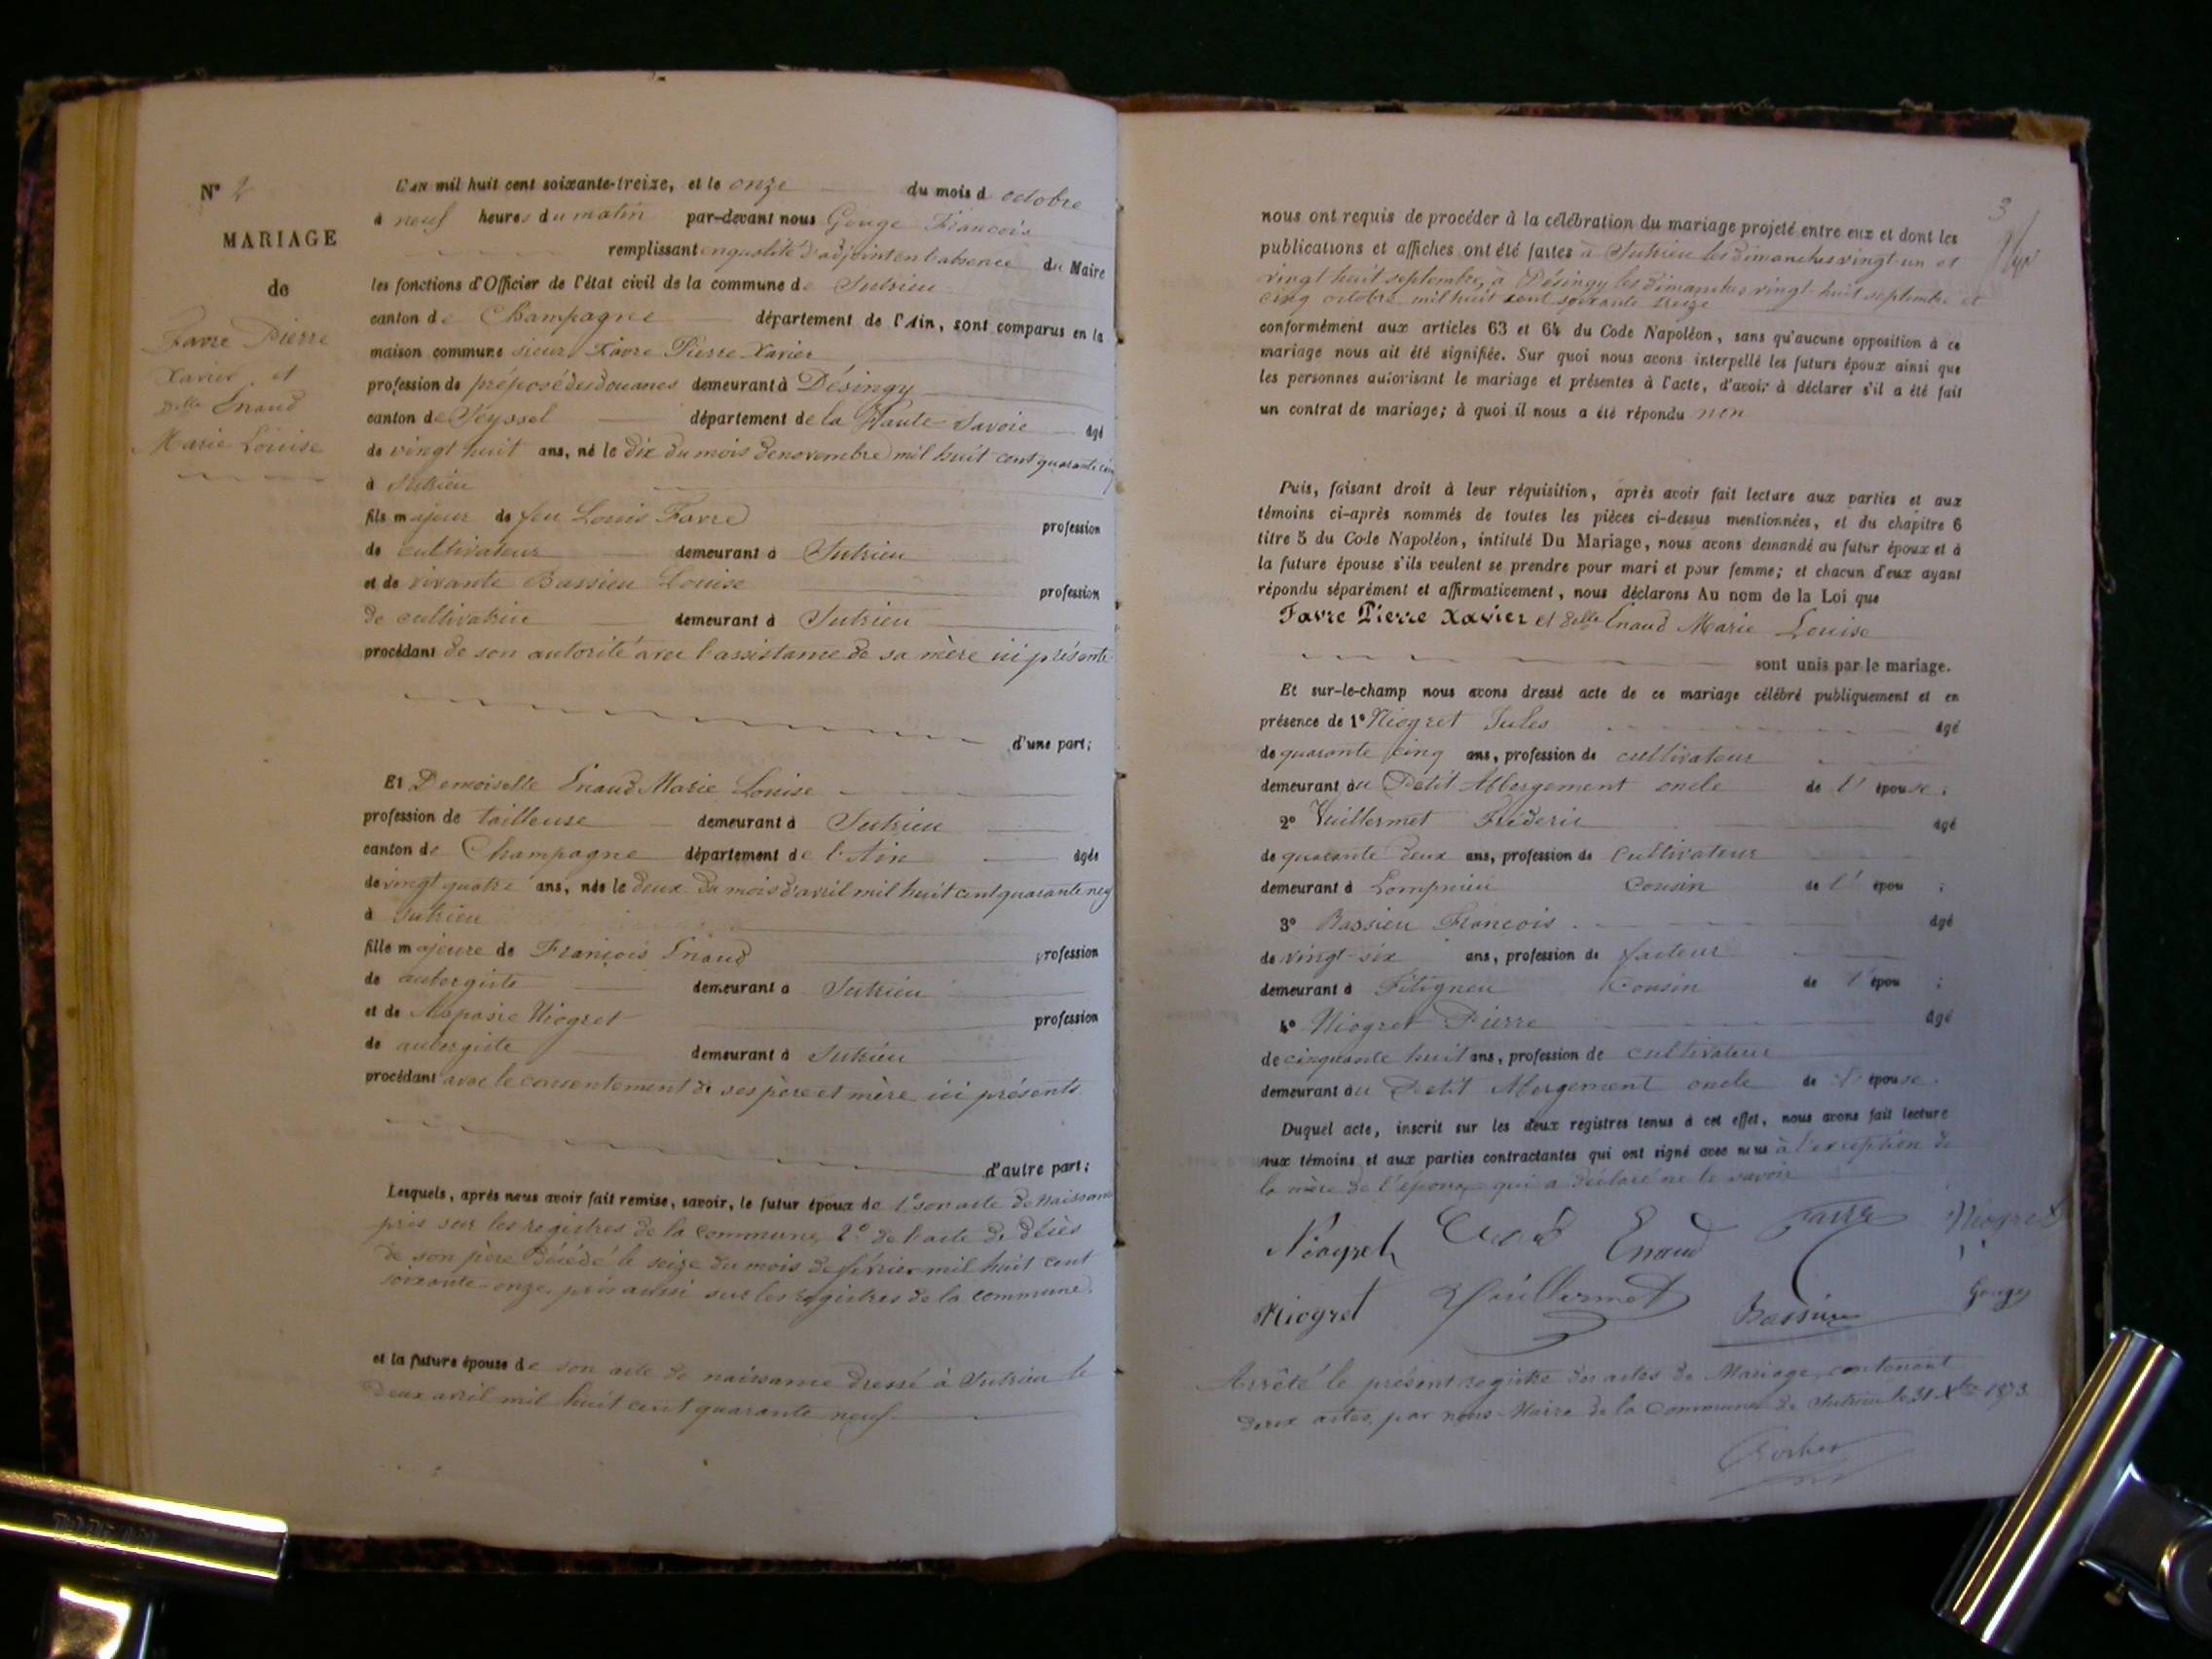 N° 2
MARIAGE
de
Favre Pierre
Xavier et
Delle Enaud
Marie Louise
L'AN mil huit cent soixante-treize, et le onze du mois d octobre
à neuf heures du matin par-devant nous Gouge François
remplissant en qualité d'adjoint en l'absence du Maire
les fonctions d'Officier de l'état civil de la commune de Sutrieu
canton de Champagne département de l'Ain, sont comparus en la
maison commune sieur Favre Pierre Xavier
profession de préposé des douanes demeurant à Désingy
canton de Seyssel département de la Haute-Savoie âgé
de vingt huit ans, né le dix du mois de novembre mil huit cent quarante cinq
à Sutrieu
fils majeur de feu Louis Favre profession
de cultivateur demeurant à Sutrieu
et de vivante Bassieu Louise profession
de cultivatrice demeurant à Sutrieu
procédant de son autorité avec l'assistance de sa mère ici présente
d'une part;
Et Demoiselle Enaud Marie Louise
profession de tailleuse demeurant à Sutrieu
canton de Champagne département de l'Ain âgée
de vingt quatre ans, née le deux du mois d'avril mil huit cent quarante neuf
à Sutrieu
fille majeure de François Enaud profession
de aubergiste demeurant à Sutrieu
et de Aspasie Niogret profession
de aubergiste demeurant à Sutrieu
procédant avec le consentement de ses père et mère ici présents
d'autre part;
Lesquels, après nous avoir fait remise, savoir, le futur époux de 1° son acte de naissance
pris sur les registres de la commune, 2° de l'acte de décès
de son père décédé le seize du mois de février mil huit cent
soixante-onze, pris aussi sur les registres de la commune.
et la future épouse de son acte de naissance dressé à Sutrieu le
deux avril mil huit cent quarante neuf
3
nous ont requis de procéder à la célébration du mariage projeté entre eux et dont les
publications et affiches ont été faites à Sutrieu les dimanches vingt-un et
vingt huit septembre, à Désingy les dimanches vingt-huit septembre et
cinq octobre mil huit cent soixante treize
conformément aux articles 63 et 64 du Code Napoléon, sans qu'aucune opposition à ce
mariage nous ait été signifiée. Sur quoi nous avons interpellé les futurs époux ainsi que
les personnes autorisant le mariage et présentes à l'acte, d'avoir à déclarer s'il a été fait
un contrat de mariage; à quoi il nous a été répondu non
Puis, faisant droit à leur réquisition, après avoir fait lecture aux parties et aux
témoins ci-après nommés de toutes les pièces ci-dessus mentionnées, et du chapitre 6
titre 5 du Code Napoléon, intitulé Du Mariage, nous avons demandé au futur époux et à
la future épouse s'ils veulent se prendre pour mari et pour femme; et chacun d'eux ayant
répondu séparément et affirmativement, nous déclarons Au nom de la Loi que
Favre Pierre Xavier et Delle Enaud Marie Louise
sont unis par le mariage.
Et sur-le-champ nous avons dressé acte de ce mariage célébré publiquement et en
présence de 1° Niogret Jules âgé
de quarante cinq ans, profession de cultivateur
demeurant au Petit Abbergement oncle de l'épouse;
2° Vuillermet Fréderic âgé
de quarante deux ans, profession de cultivateur
demeurant à Lompnieu cousin de l'épou ;
3° Bassieu Francois âgé
de vingt-six ans, profession de facteur
demeurant à Fitignieu cousin de l'épou ;
4° Niogret Pierre âgé
de cinquante huit ans, profession de cultivateur
demeurant au Petit Abergement oncle de l'épouse.
Duquel acte, inscrit sur les deux registres tenus à cet effet, nous avons fait lecture
aux témoins et aux parties contractantes qui ont signé avec nous à l'exception de
la mère de l'époux qui a déclaré ne le savoir
Niogret Enaud Favre Niogret
Niogret Vuillermet Bassieu Gouge
Arrêté le présent registre des actes de Mariage contenant
deux actes, par nous Maire de la Commune de Sutrieu le 31 Xbre 1873